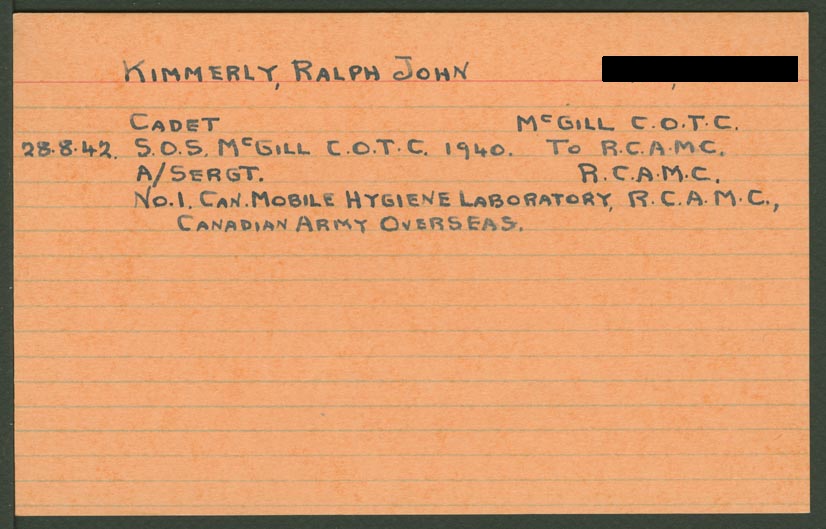 KIMMERLY, RALPH JOHN
CADET McGILL C.O.T.C.
28.8.42. S.O.S. McGILL C.O.T.C. 1940. TO R.C.A.M.C.
A/SERGT. R.C.A.M.C.
No.1. CAN. MOBILE HYGIENE LABORATORY, R.C.A.M.C.,
CANADIAN ARMY OVERSEAS.